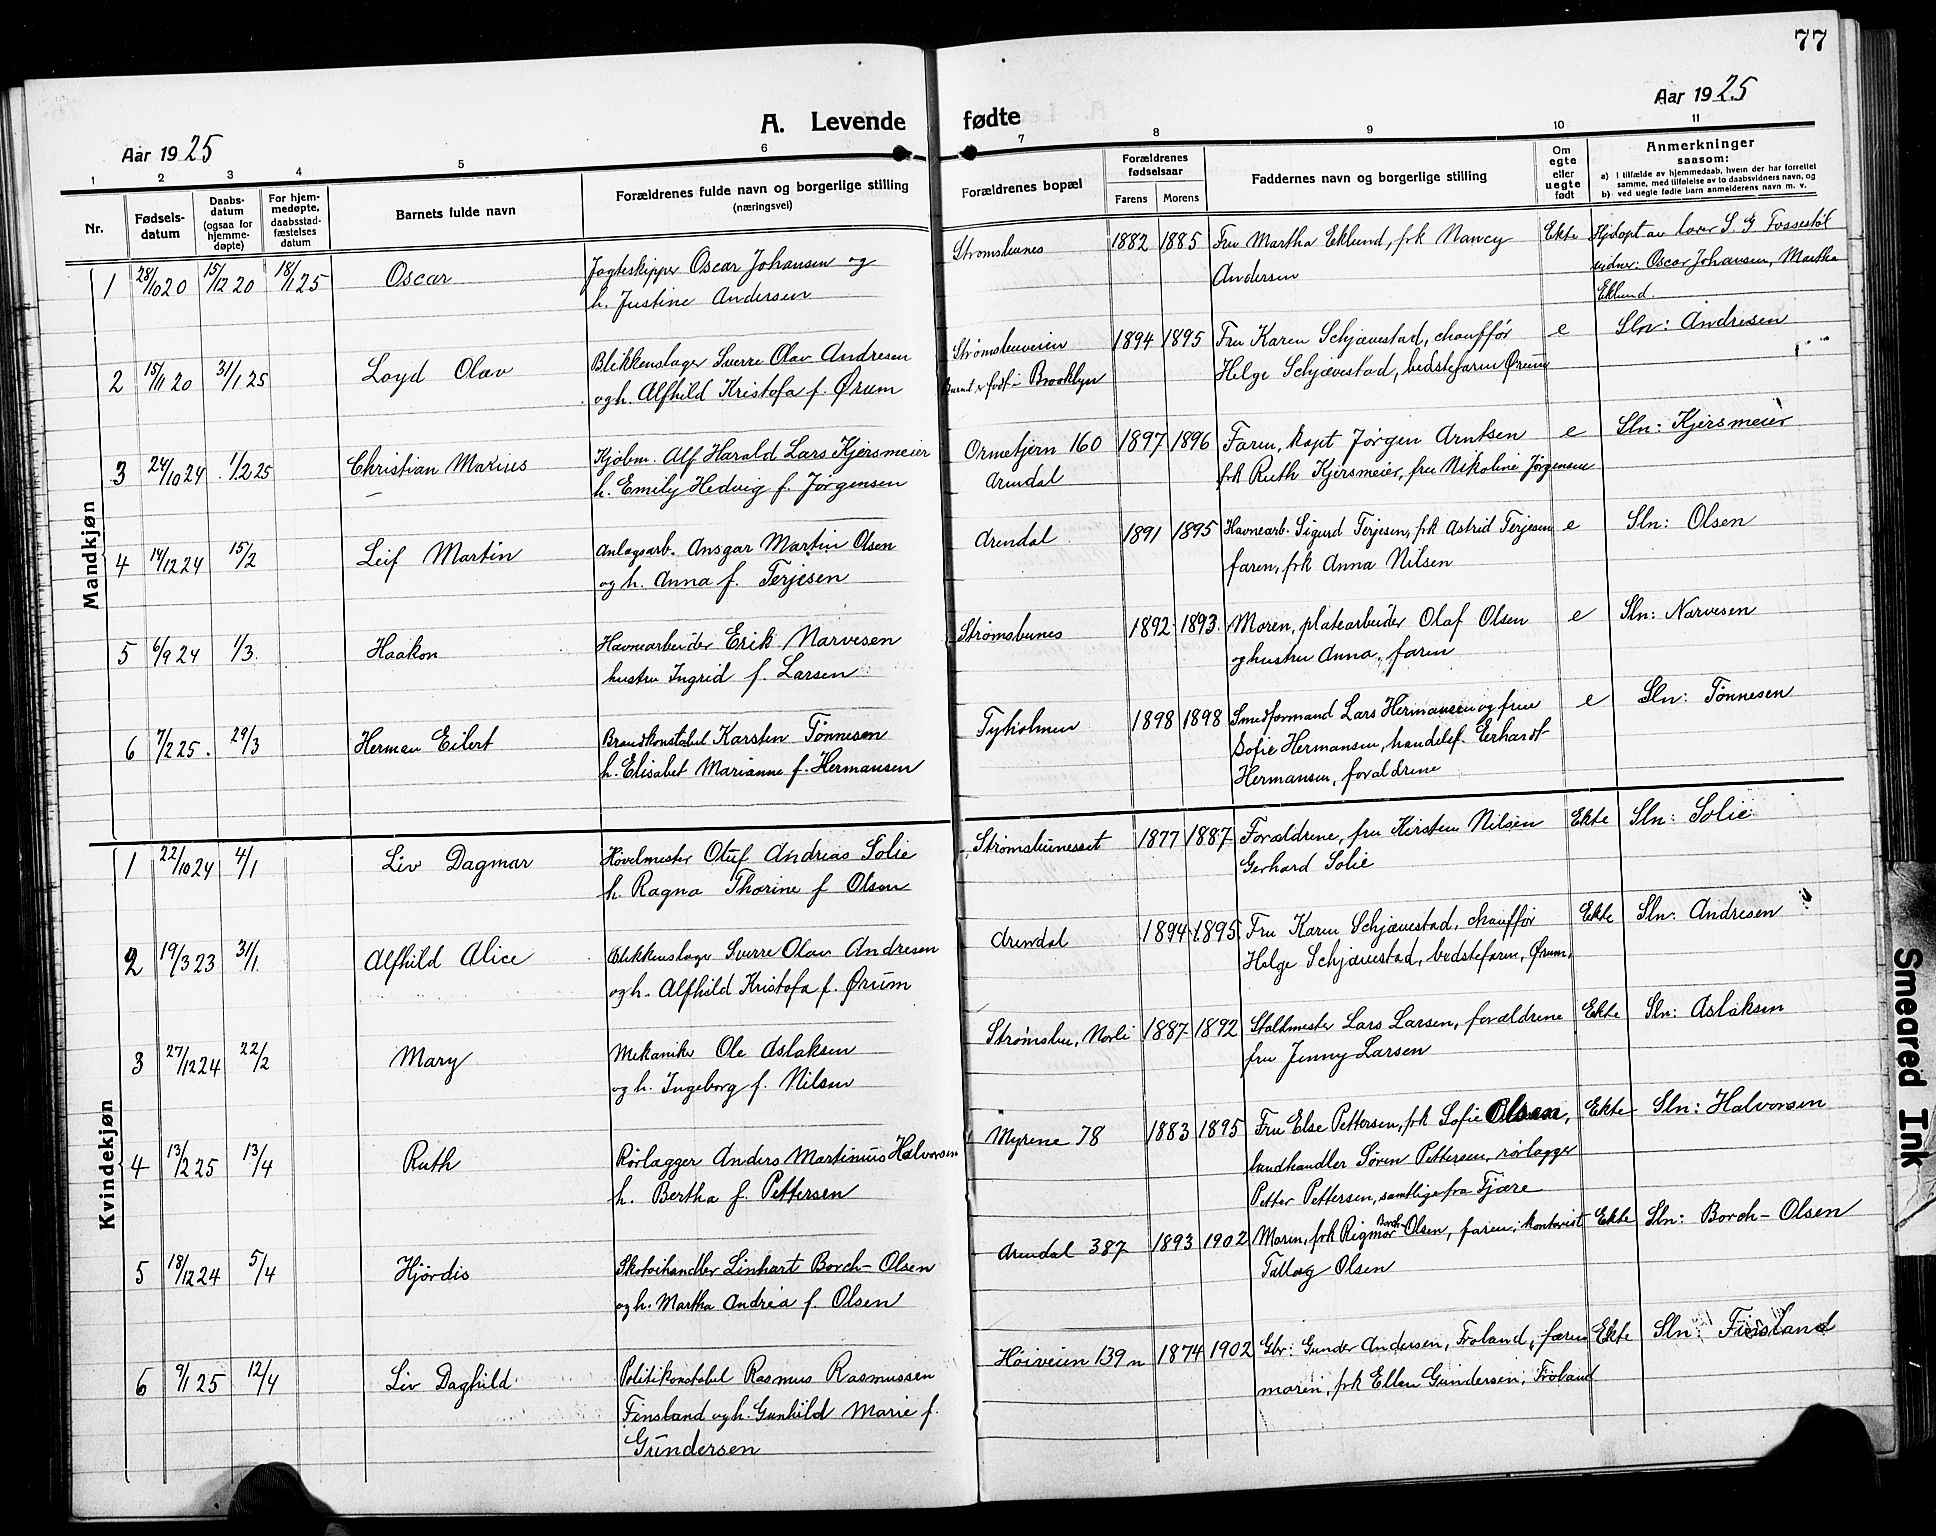 77
Aar 1925
Aar 1925
A. Levende fødte
1 2 3 4 5 6 7 8 9 10 11
Nr.
Fødsels-
datum
Daabs-
datum
(ogsaa for
hjemme-
døpte)
For hjem-
medøpte,
daabsstad-
fæstelses
datum
Barnets fulde navn
Forældrenes fulde navn og borgerlige stilling
(næringsvei)
Forældrenes bopæl
Forældrenes
fødselsaar
Farens Morens
Faddernes navn og borgerlige stilling
Om
egte
eller
uegte
født
Anmerkninger
saasom:
a) I tilfælde av hjemmedaab, hvem der har forrettet
samme, med tilføielse av to daabsvidners navn, og
b) ved uegte fødte barn anmelderens navn m. v.
Mandkjøn
1 28/10 20 15/12 20 18/1 25 Oscar
Jagteskipper Oscar Johansen og
h. Justine Andersen
Strømsbunes 1882 1885
Fru Martha Eklund, frk Nancy
Andersen
Ekte
Hjdøpt av lærer S G Fossestøl
vidner: Oscar Johansen, Martha
Eklund.
2 15/11 20 31/1 25 Loyd Olav
Blikkenslager Sverre Olav Andresen
og h. Alfhild Kristofa f. Ørum
Strømsbuveien
Barnet er født i Brooklyn
1894 1895
Fru Karen Schjævestad, chauffør
Helge Schjævestad, bedstefaren Ørum
e Sln: Andresen
3 24/10 24 1/2 25 Christian Marius
Kjøbm. Alf Harald Lars Kjersmeier
h. Emily Hedvig f. Jørgensen
Ormetjern 160
Arendal
1897 1896
Faren, kapt Jørgen Arntsen
frk Ruth Kjersmeier, fru Nikoline Jørgensen
e Sln: Kjersmeier
4 14/12 24 15/2 Leif Martin
Anlægsarb. Ansgar Martin Olsen
og h. Anna f. Terjesen
Arendal 1891 1895
Havnearb. Sigurd Terjesen, frk Astrid Terjesen
faren, frk Anna Nilsen
e Sln: Olsen
5 6/9 24 1/3 Haakon
Havnearbeider Erik Narvesen
hustru Ingrid f. Larsen
Strømsbunes 1892 1893
Moren, platearbeider Olaf Olsen
og hustru Anna, faren
e Sln: Narvesen
6 7/2 25. 29/3 Herman Eilert
Brandkonstabel Karsten Tønnesen
h. Elisabet Marianne f. Hermansen
Tyholmen 1898 1898
Smedformand Lars Hermansen og frue
Sofie Hermansen, handelsf. Gerhardt
Hermansen, forældrene
e Sln: Tønnesen
Kvindekjøn
1 22/10 24 4/1 Liv Dagmar
Høvelmester Oluf Andreas Solie
h. Ragna Thorine f Olsen
Strømsbunesset 1877 1887
Forældrene, fru Kirsten Nilsen
Gerhard Solie
Ekte Sln: Solie
2 19/3 23 31/1 Alfhild Alice
Blikkenslager Sverre Olav Andresen
og h. Alfhild Kristofa f. Ørum
Arendal 1894 1895
Fru Karen Schjævestad, chauffør
Helge Schjævestad, bedstefaren, Ørum.
Ekte Sln: Andresen
3 27/12 24 22/2 Mary
Mekaniker Ole Aslaksen
og h. Ingeborg f. Nilsen
Strømsbu, Norli 1887 1892
Staldmester Lars Larsen, forældrene
fru Jenny Larsen
Ekte Sln: Aslaksen
4 13/2 25 13/4 Ruth
Rørlægger Anders Martinius Halvorsen
h. Bertha f. Pettersen
Myrene 78 1883 1895
Fru Else Pettersen, frk Sofie Olsen,
landhandler Søren Pettersen, rørlægger
Petter Pettersen, samtlige fra Fjære
Ekte Sln: Halvorsen
5 18/12 24 5/4 Hjørdis
Skotøihandler Linhart Borch-Olsen
og h. Martha Andrea f. Olsen
Arendal 387 1893 1902
Moren, frk Rigmor Borch-Olsen, faren, kontorist
Tallag Olsen
Ekte Sln: Borch-Olsen
6 9/1 25 12/4 Liv Daghild
Politikonstabel Rasmus Rasmussen
Finsland og h. Gunhild Marie f.
Gundersen
Høiveien 139 n 1874 1902
Gbr: Gunder Andersen, Froland, faren
moren, frk Ellen Gundersen, Froland
Ekte Sln: Finsland
Smeared Ink